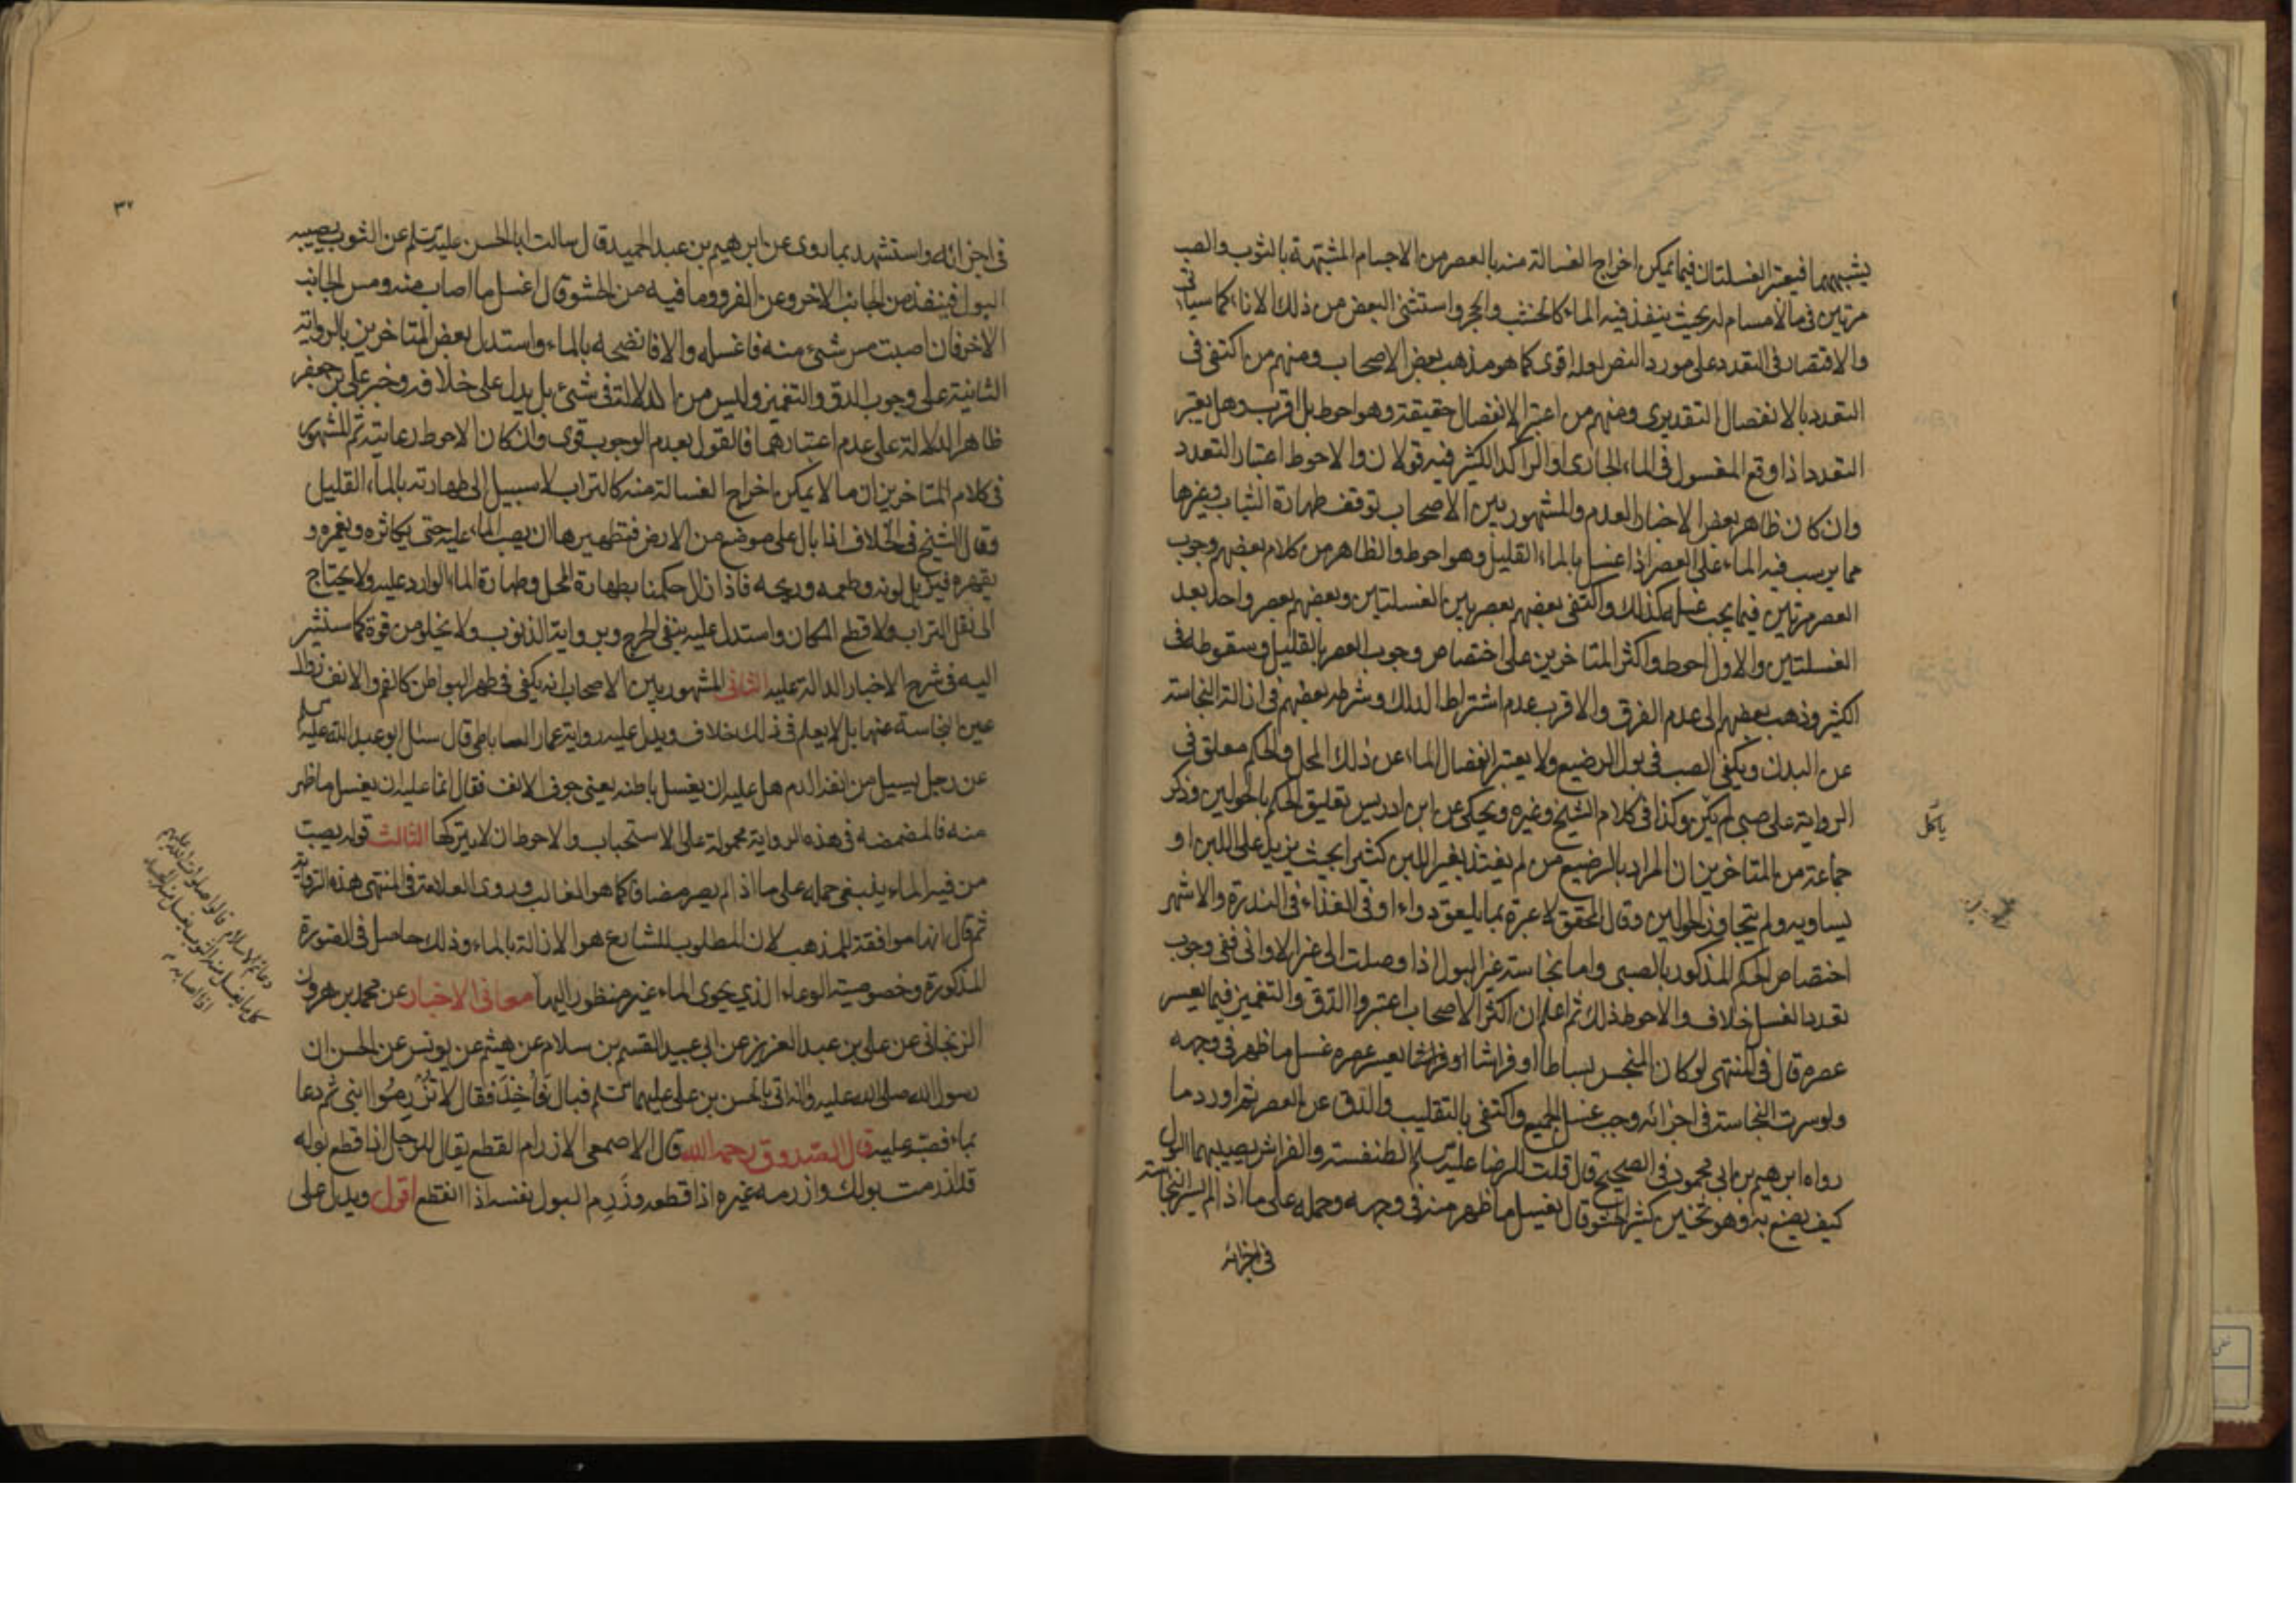 يشبههما فيعتبر الغسلتان فيما يمكن اخراج الغسالة منه بالعصر من الاجسام المشبهة بالثوب والصب
مرتين في ما لا مسام له بحيث ينفذ فيه الماء كالخشب والحجر واستثنى البعض من ذلك الاناء كما سياتي
والاقتصار في التعدد على مورد النص لعله اقوى كما هو مذهب بعض الاصحاب ومنهم من اكتفى في
التعدد بالانفصال التقديري ومنهم من اعتبر الانفصال حقيقة وهو احوط بل اقرب وهل يعتبر
التعدد اذا وقع المغسول في الماء الجارى او الراكد الكثير فيه قولان والاحوط اعتبار التعدد
وان كان ظاهر بعض الاخبار العدم والمشهور بين الاصحاب توقف طهارة الثياب وغيرها
مما يرسب فيه الماء على العصر اذا غسل بالماء القليل وهو احوط والظاهر من كلام بعضهم وجوب
العصر مرتين فيما يجب غسله كذلك واكتفى بعضهم بعصر بين الغسلتين وبعضهم بعصر واحد بعد
الغسلتين والاول احوط واكثر المتاخرين على اختصاص وجوب العصر بالقليل وسقوطه في
الكثير وذهب بعضهم الى عدم الفرق والاقرب عدم اشتراط الدلك وشرطه بعضهم في ازالة النجاسة
عن البدن ويكفي الصب في بول الرضيع ولا يعتبر انفصال الماء عن ذلك المحل والحكم معلق في
الرواية على صبي لم ياكل وكذا في كلام الشيخ وغيره ويحكى عن ابن ادريس تعليق الحكم بالحولين وذكر
ياكل
جماعة من المتاخرين ان المراد بالرضيع من لم يغتذ بغير اللبن كثيرا بحيث يزيد على اللبن او
يساويه ولم يتجاوز الحولين وقال المحقق لا عبرة بما يلعق دواء او في الغذاء في الندرة والاشهر
اختصاص الحكم المذكور بالصبي واما نجاسة غير البول اذا وصلت الى غير الاواني ففي وجوب
تعدد الغسل خلاف والاحوط ذلك ثم اعلم ان اكثر الاصحاب اعتبروا الدق والتغميز فيما يعسر
عصره قال في المنتهى لو كان المنجس بساطا او فراشا يعسر عصره غسل ما ظهر في وجهه
ولو سرت النجاسة في اجزائه وجب غسل الجميع واكتفى بالتقليب والدق عن العصر ثم اورد ما
رواه ابرهيم بن ابي محمود في الصحيح قال قلت للرضا عليه السلم الطنفسة والفراش يصيبهما البول
كيف يصنع به وهو ثخين كثير الحشو قال يغسل ما ظهر منه في وجهه وحمله على ما اذا لم يسر النجاسة
في اجزائه
٣٧
في اجزائه واستشهد بما روى عن ابرهيم بن عبد الحميد قال سالت ابا الحسن عليه السلم عن الثوب يصيبه
البول فينفذ من الجانب الاخر وعن الفرو وما فيه من الحشو قال اغسل ما اصاب منه ومس الجانب
الاخر فان اصبت مس شئ منه فاغسله والا فانضحه بالماء واستدل بعض المتاخرين بالرواية
الثانية على وجوب الدق والتغميز وليس من الدلالة في شئ بل يدل على خلافه وخبر علي بن جعفر
ظاهر الدلالة على عدم اعتبارهما فالقول بعدم الوجوب قوى وان كان الاحوط رعايته ثم المشهور
في كلام المتاخرين ان ما لا يمكن اخراج الغسالة منه كالتراب لا سبيل الى طهارته بالماء القليل
وقال الشيخ في الخلاف اذا بال على موضع من الارض فتطهيرها ان يصب الماء عليه حتى يكاثره ويغمره و
يقهره فيزيل لونه وطعمه وريحه فاذا زال حكمنا بطهارة المحل وطهارة الماء الوارد عليه ولا يحتاج
الى نقل التراب ولا قطع المكان واستدل عليه بنفي الحرج وبرواية الذنوب ولا يخلو من قوة كما سنشير
اليه في شرح الاخبار الدالة عليه الثاني المشهور بين الاصحاب انه يكفي في طهر البواطن كالفم والانف زوال
عين النجاسة عنها بل لا يعلم في ذلك خلاف ويدل عليه رواية عمار الساباطي قال سئل ابو عبد الله عليه السلم
عن رجل يسيل من انفه الدم هل عليه ان يغسل باطنه يعني جوف الانف فقال انما عليه ان يغسل ما ظهر
منه فالمضمضه في هذه الرواية محمولة على الاستحباب والاحوط ان لا يتركها الثالث قوله يصبت
من فيه الماء ينبغي حمله على ما اذا لم يصر مضافا كما هو الغالب وروى العلامة في المنتهى هذه الرواية
ثم قال انها موافقة للمذهب لان المطلوب للشارع هو الازالة بالماء وذلك حاصل في الصورة
المذكورة وخصوصية الوعاء الذي يحوى الماء غير منظور اليها معاني الاخبار عن محمد بن هرون
الزنجاني عن علي بن عبد العزيز عن ابي عبيد القسم بن سلام عن هيثم عن يونس عن الحسن ان
رسول الله صلى الله عليه واله اتى بالحسن بن علي عليهما السلم فبال فَأُخِذَ فقال لا تُزْرِمُوا ابني ثم دعا
بماء فصبّه عليه قال الصدوق رحمه الله قال الاصمعى الازرام القطع يقال للرجل اذا قطع بوله
قد ازرمت بولك وازرمه غيره اذا قطعه وزَرِم البول نفسه اذا انقطع اقول ويدل على
دعائم الاسلام قالوا صلوات الله عليهم
اذا اصابه